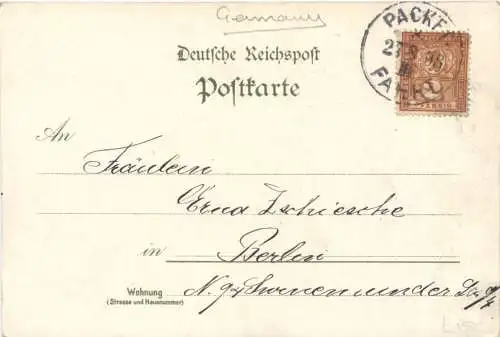 Germany
PACKET
27.9.96
III
FAHRT
PFENNIG
Deutsche Reichspost
Postkarte
An
Fräulein
Erna Zschiesche
in Berlin
Wohnung
(Strasse und Hausnummer)
N.